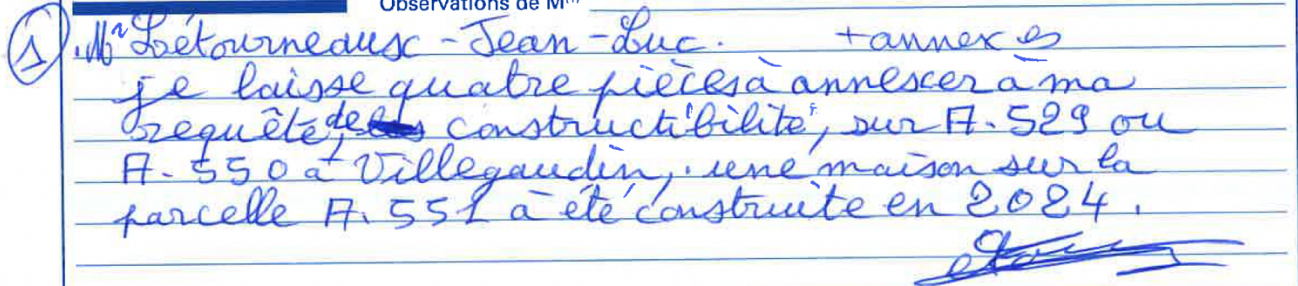 Observations de M
① Mr Létourneaux - Jean - Luc. + annexes
je laisse quatre pièces à annexer à ma
requête, de constructibilité, sur A. 529 ou
A- 550 à Villegaudin, une maison sur la
parcelle A. 551 à été construite en 2024.